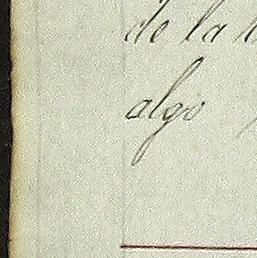 de la
algo